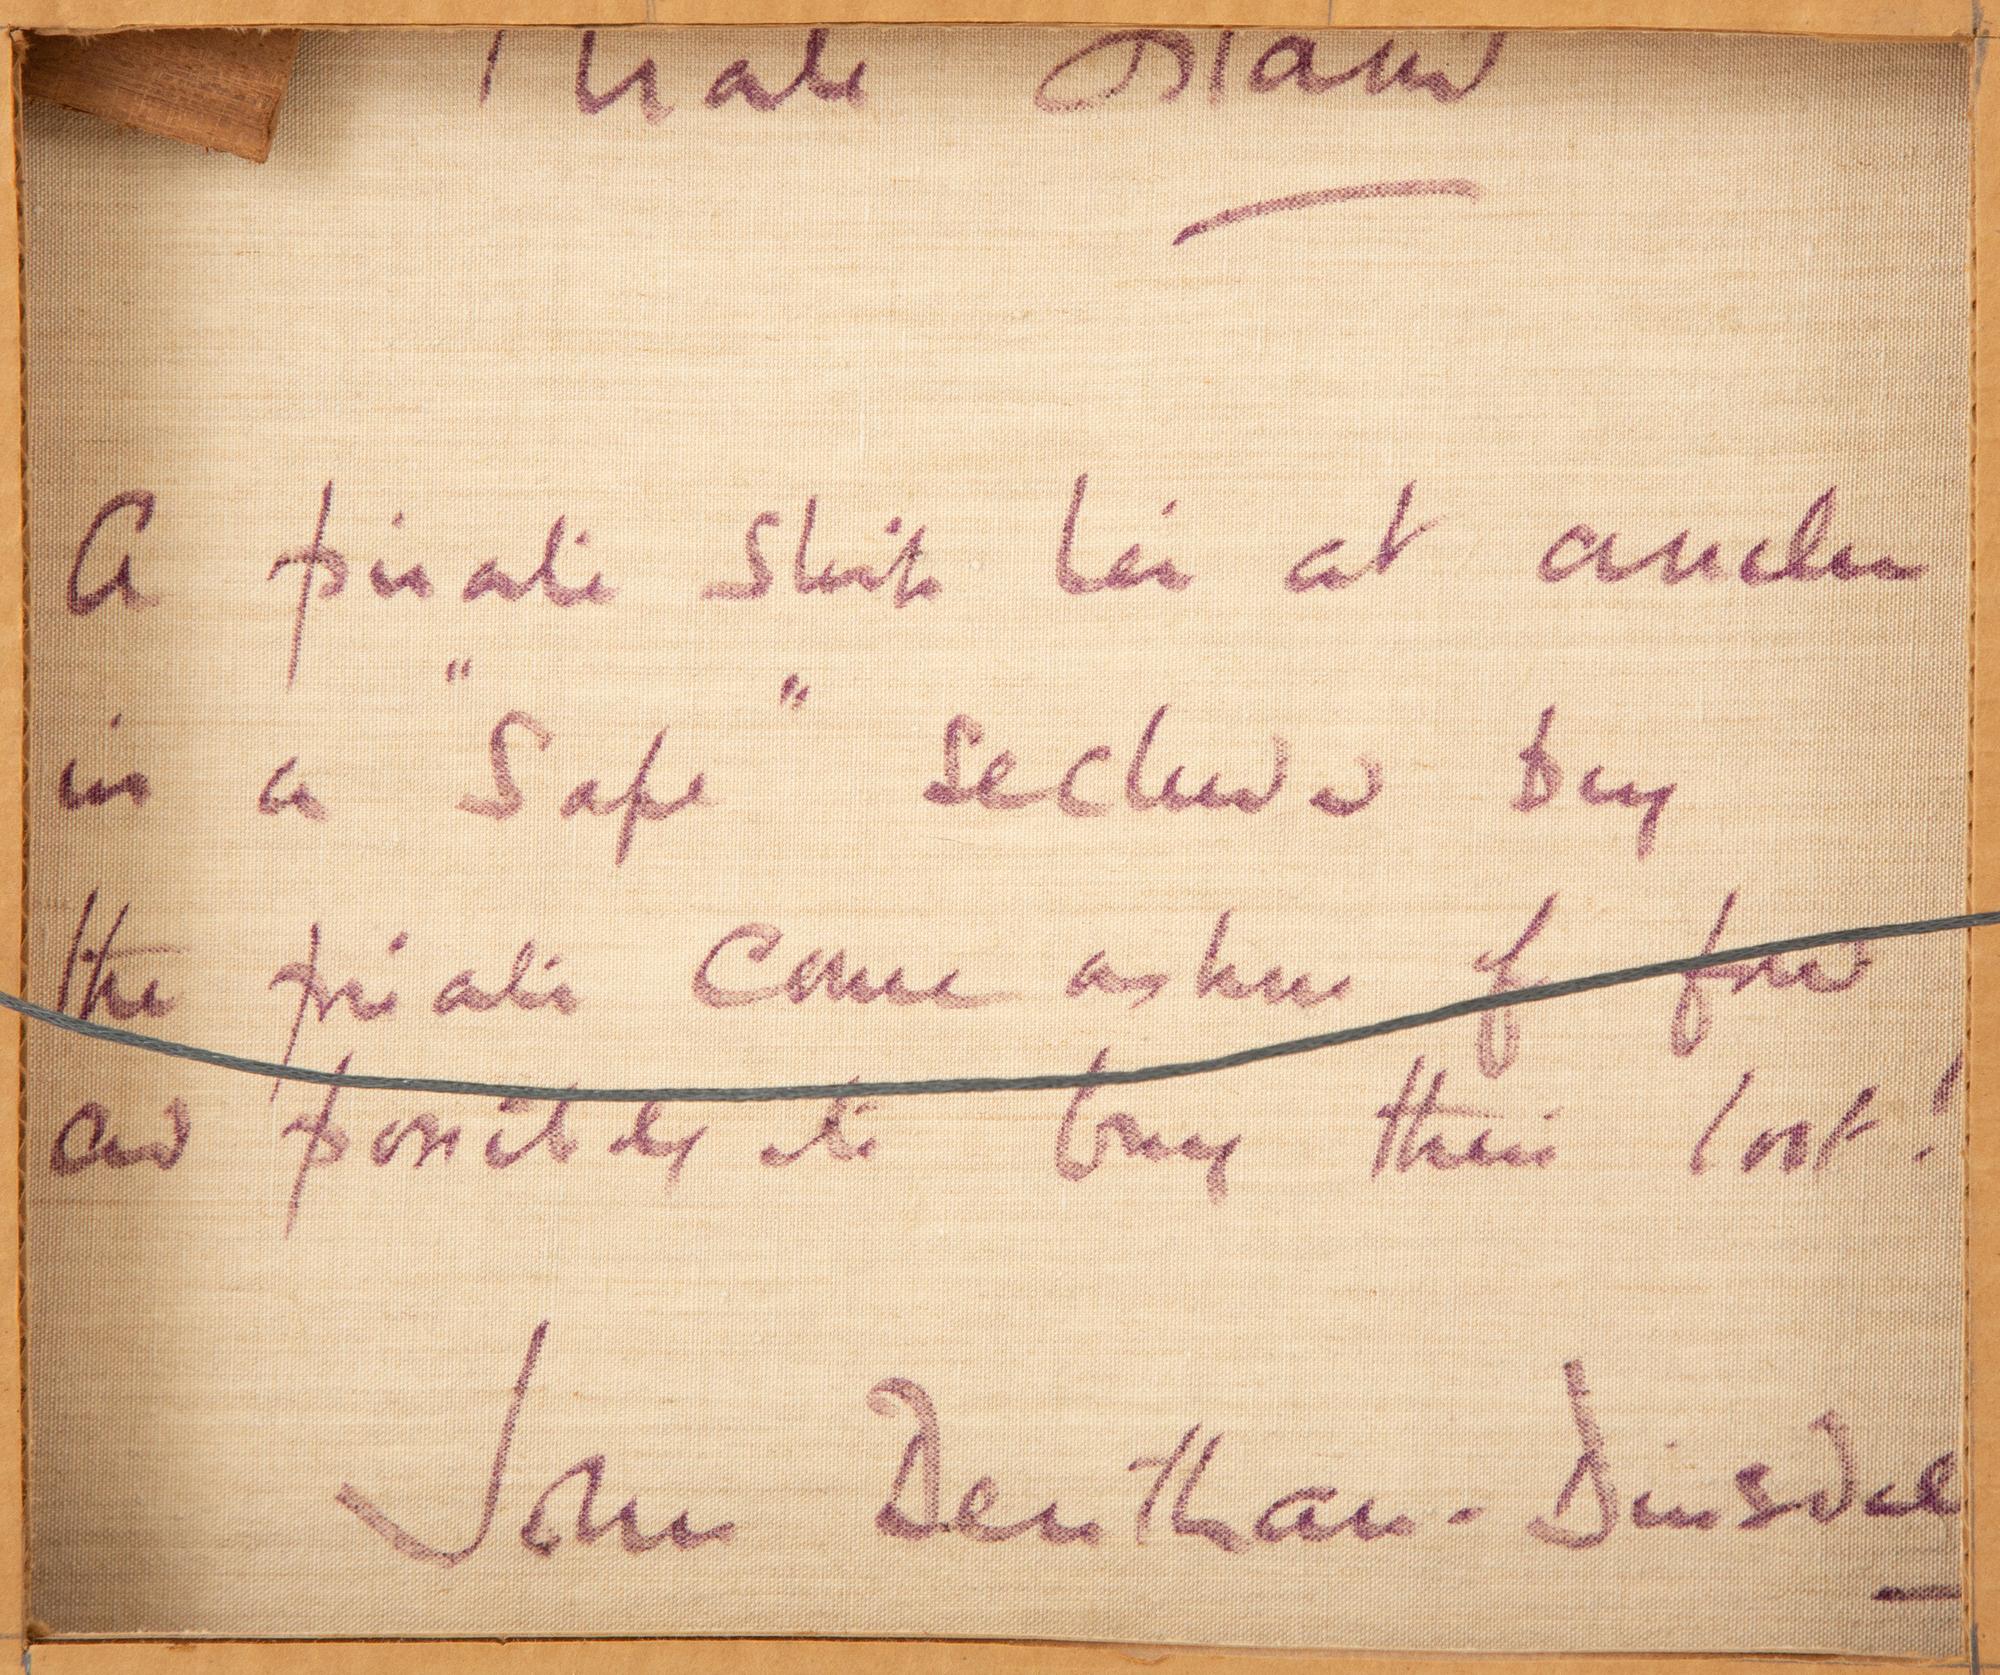 Pirate Island
A pirate ship lies at anchor
in a "Safe" secluded bay
the pirates come ashore for food
and possibly to bury their loot!
John Bentham-Dinsdale